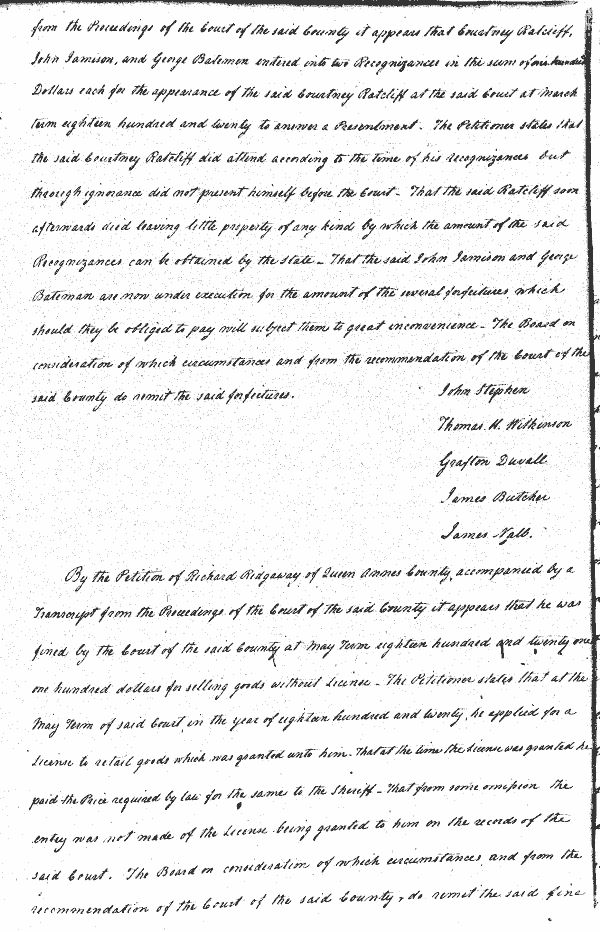 from the Proceedings of the Court of the said County it appears that Courtney Ratcliff,
John Jamison, and George Bateman entered into two Recognizances in the sum of one hundred
Dollars each for the appearance of the said Courtney Ratcliff at the said Court at March
term eighteen hundred and twenty to answer a Presentment. The Petitioner states that
the said Courtney Ratcliff did attend according to the time of his recognizances but
through ignorance did not present himself before the Court - That the said Ratcliff soon
afterwards died leaving little property of any kind by which the amount of the said
Recognizances can be obtained by the State - That the said John Jamison and George
Bateman are now under execution for the amount of the several forfeitures, which
should they be obliged to pay will subject them to great inconvenience - The Board on
consideration of which circumstances and from the recommendation of the Court of the
said County do remit the said forfeitures.
John Stephen
Thomas H. Wilkinson
Grafton Duvall
James Butcher
James Nabb.
By the Petition of Richard Ridgaway of Queen Annes County, accompanied by a
Transcript from the Proceedings of the Court of the said County it appears that he was
fined by the Court of the said County at May Term eighteen hundred and twenty one
one hundred dollars for selling goods without License - The Petitioner states that at the
May Term of said Court, in the year of eighteen hundred and twenty, he applied for a
License to retail goods which was granted unto him - That at the time the License was granted he
paid the Price required by law for the same to the Sheriff - That from some omission the
entry was not made of the License being granted to him on the records of the
said Court. The Board on consideration of which circumstances and from the
recommendation of the Court of the said County, do remit the said fine